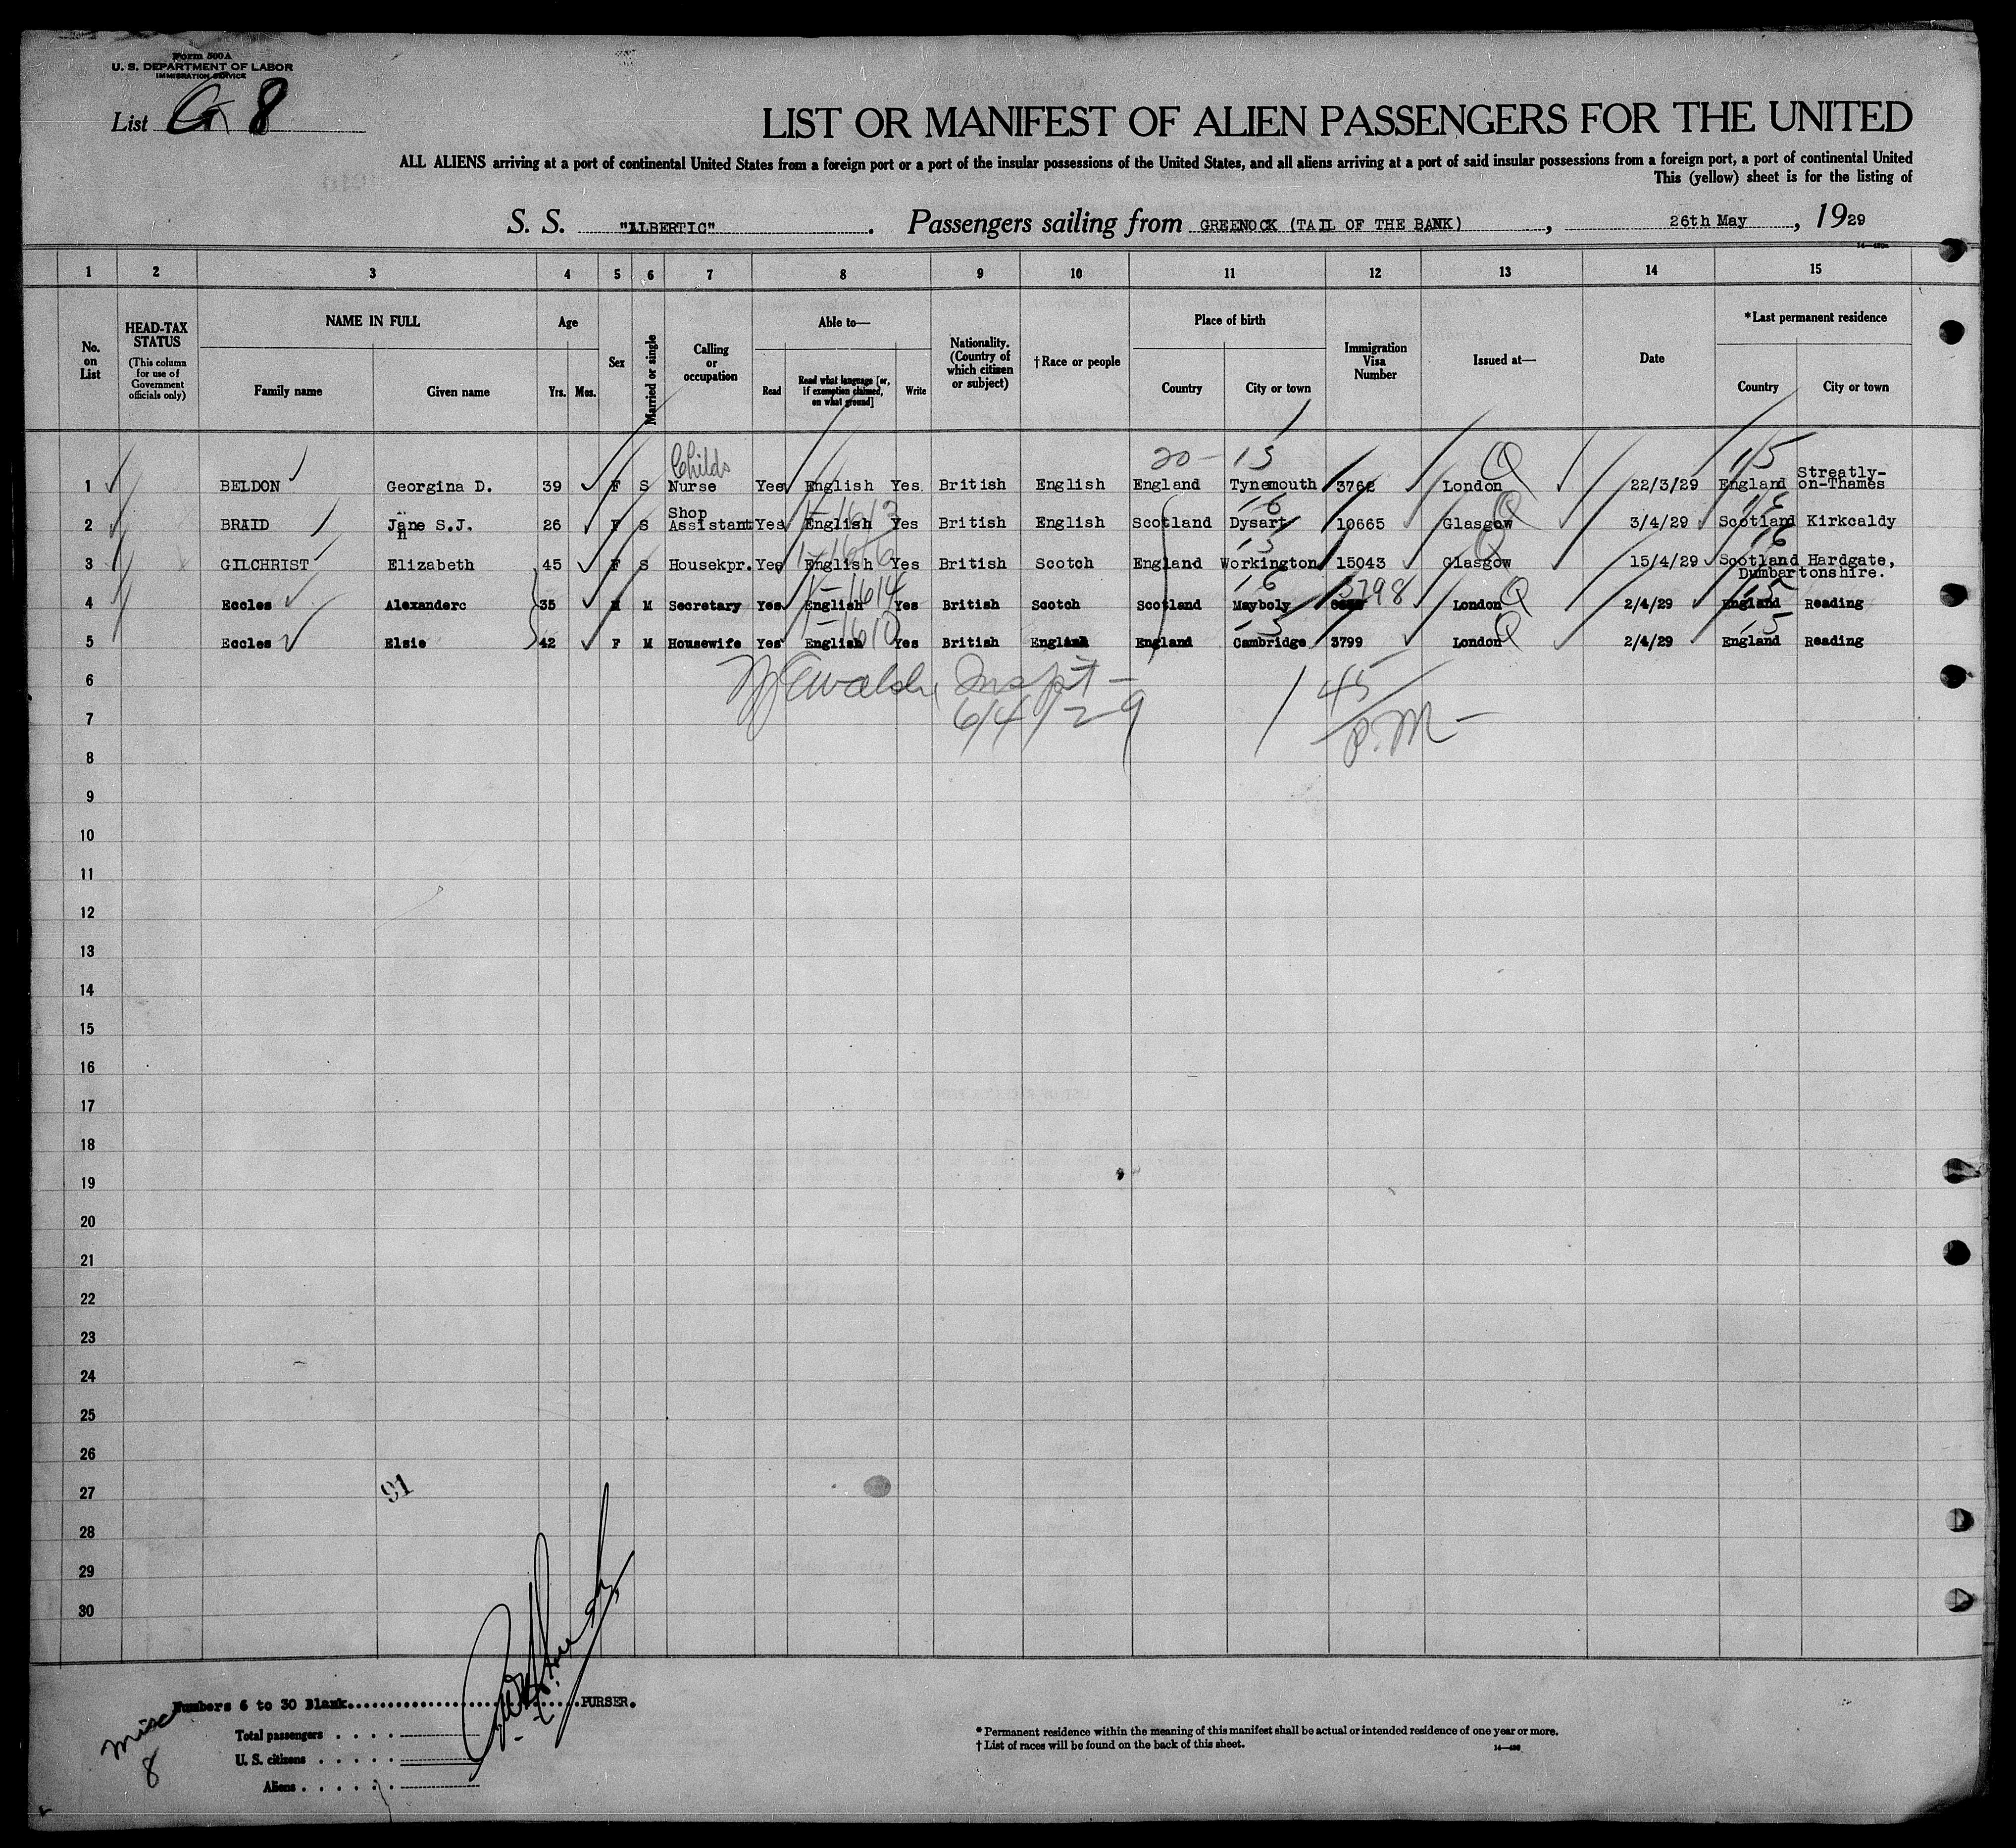 Form 500A
U. S. DEPARTMENT OF LABOR
IMMIGRATION SERVICE
List G 8
LIST OR MANIFEST OF ALIEN PASSENGERS FOR THE UNITED
ALL ALIENS arriving at a port of continental United States from a foreign port or a port of the insular possessions of the United States, and all aliens arriving at a port of said insular possessions from a foreign port, a port of continental United
This (yellow) sheet is for the listing of
S. S. "ALBERTIC". Passengers sailing from GREENOCK (TAIL OF THE BANK), 26th May, 1929
1 2 3 4 5 6 7 8 9 10 11 12 13 14 15
No. on List
HEAD-TAX STATUS
(This column for use of Government officials only)
NAME IN FULL
Family name
Given name
Age
Yrs. Mos.
Sex
Married or single
Calling or occupation
Able to—
Read
Read what language [or, if exemption claimed, on what ground]
Write
Nationality. (Country of which citizen or subject)
†Race or people
Place of birth
Country
City or town
Immigration Visa Number
Issued at—
Date
*Last permanent residence
Country
City or town
Childs 20 - 15 Q 15 Streatly-
1 BELDON Georgina D. 39 F S Nurse Yes English Yes British English England Tynemouth 3762 London 22/3/29 England on-Thames
Shop 1-1613 16 Q 16
2 BRAID Jane S.J. 26 F S Assistant Yes English Yes British English Scotland Dysart 10665 Glasgow 3/4/29 Scotland Kirkcaldy
n
1-1616 15 Q 16
3 GILCHRIST Elizabeth 45 F S Housekpr. Yes English Yes British Scotch England Workington 15043 Glasgow 15/4/29 Scotland Hardgate,
Dumbartonshire.
1-1614 16 3798 15
4 Eccles Alexanderc 35 M M Secretary Yes English Yes British Scotch Scotland Mayboly London Q 2/4/29 England Reading
1-1610 15 15
5 Eccles Elsie 42 F M Housewife Yes English Yes British English England Cambridge 3799 London Q 2/4/29 England Reading
6
Inspt - 1 45
7
6/4/29 P.M -
8
9
10
11
12
13
14
15
16
17
18
19
20
21
22
23
24
25
26
27
91
28
29
30
Numbers 6 to 30 Blank..............................PURSER.
Misc
8
Total passengers . . . .
U. S. citizens . . . . .
Aliens . . . . . .
* Permanent residence within the meaning of this manifest shall be actual or intended residence of one year or more.
† List of races will be found on the back of this sheet.